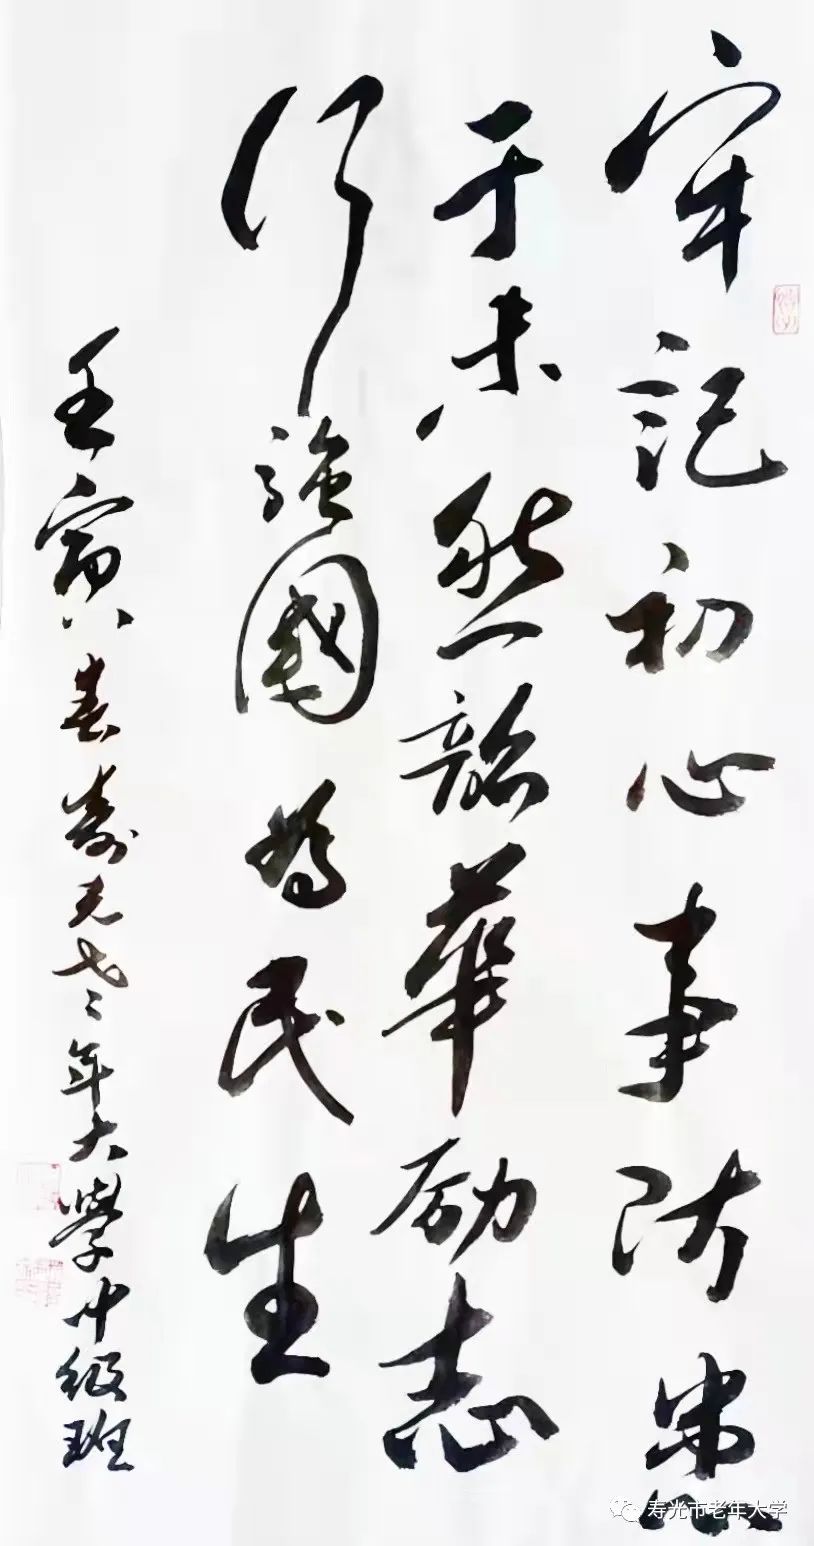 牢记初心事防患
于未然韶華励志
行強國為民生
壬寅春壽光老年大學中级班
寿光市老年大学